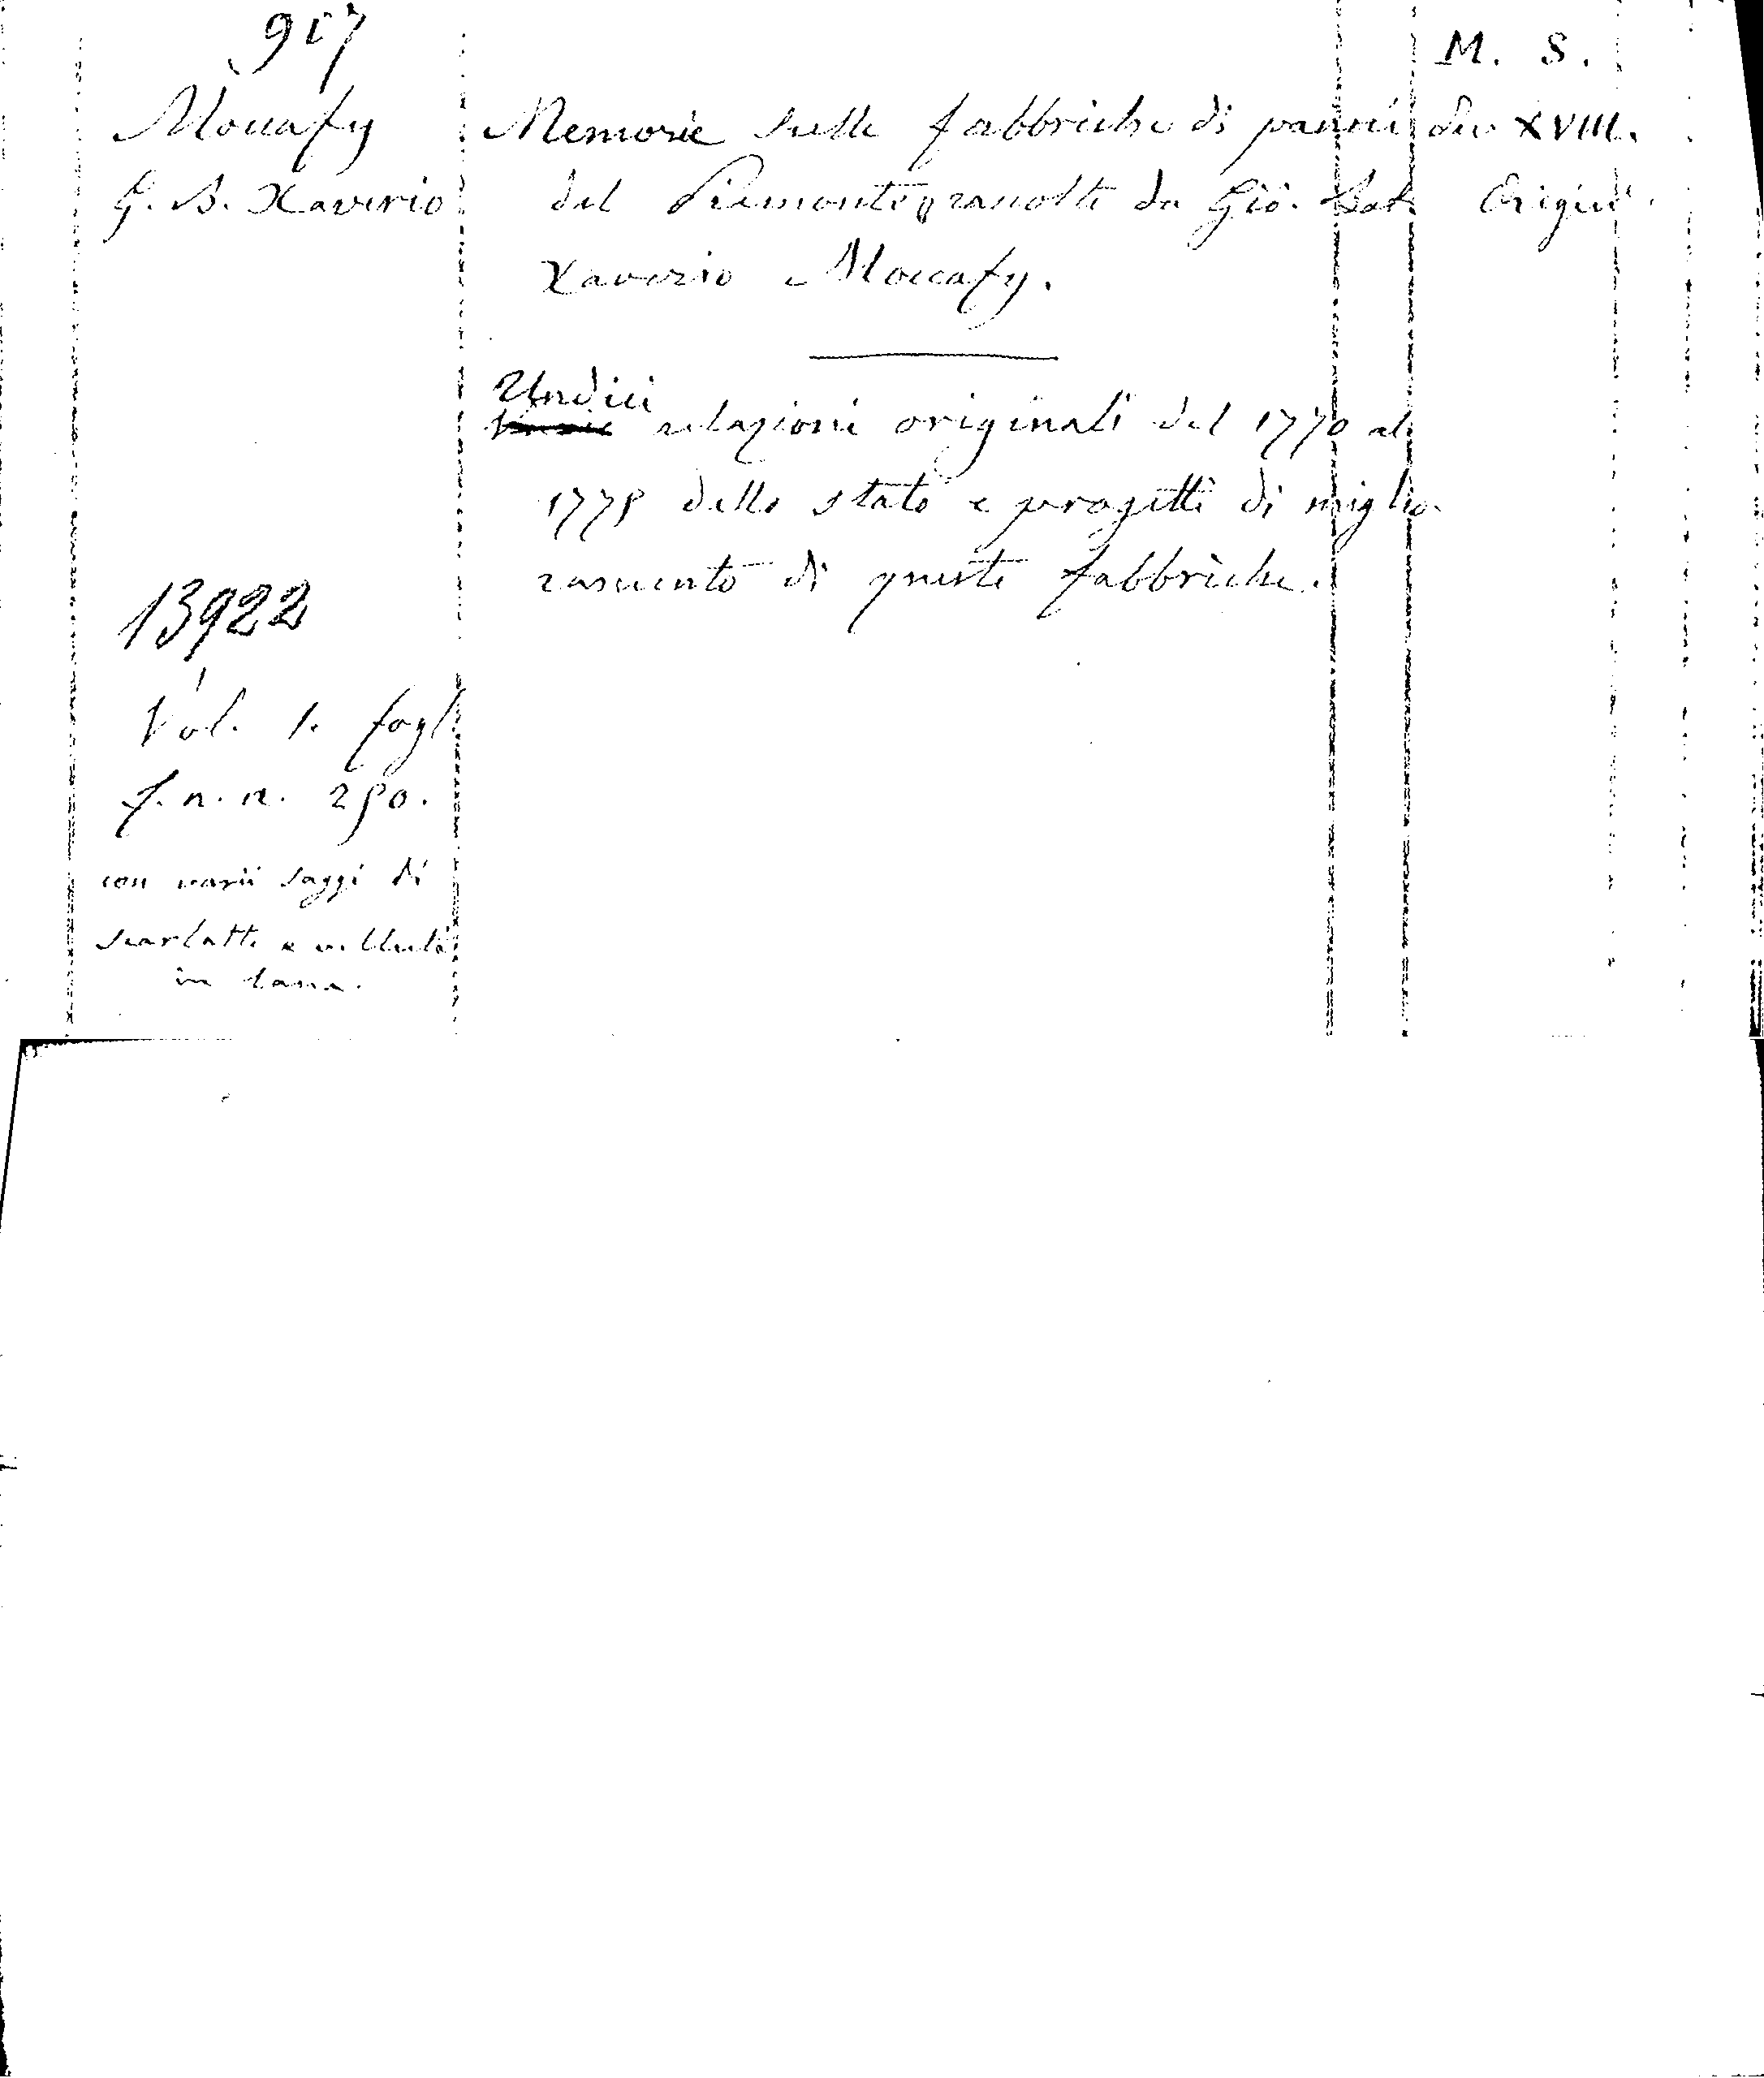 917
M. S.
Moccafy
G. B. Xaverio
Memorie sulle fabbriche di panni
del Piemonte, raccolte da Gio. Bat.
Xaverio Moccafy.
Sec XVIII.
Origin.
Undici
relazioni originali del 1770 al
1775 dello stato e progetti di miglio-
ramento di queste fabbriche.
13922
Vol. 1. fogl.
f. n. n. 250.
con varii saggi di
scarlatti e velluti
in lana.